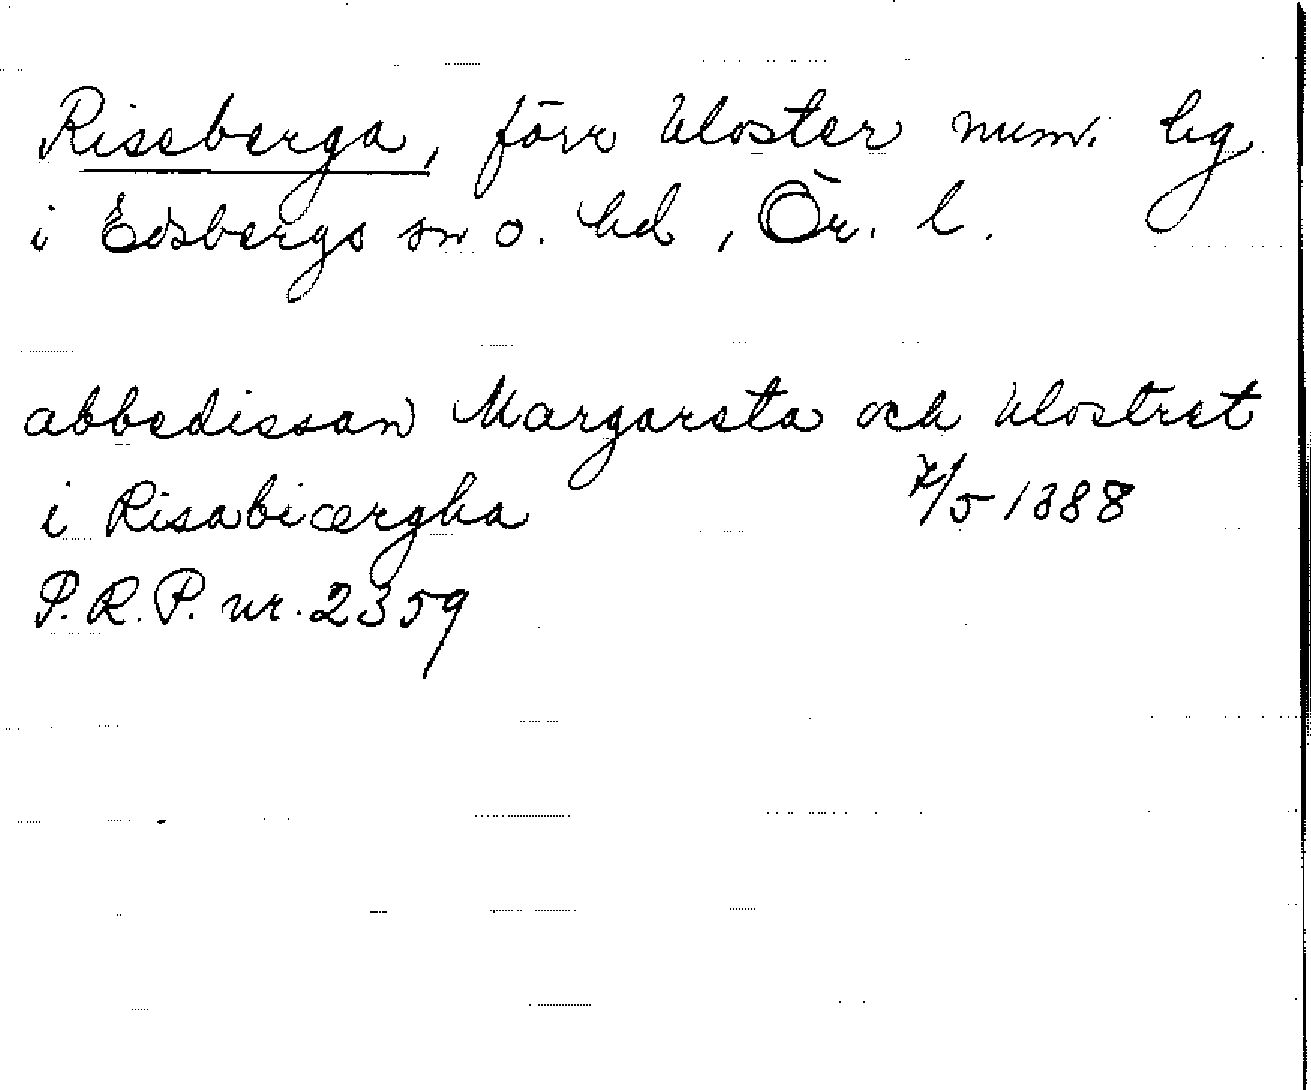 Riseberga, förr kloster numr. hg
i Edsbergs sn o. hd, Ör. l.
abbedissan Margareta och klostret
i Risabiærgha 7/5 1388
P.R.P. nr. 2359